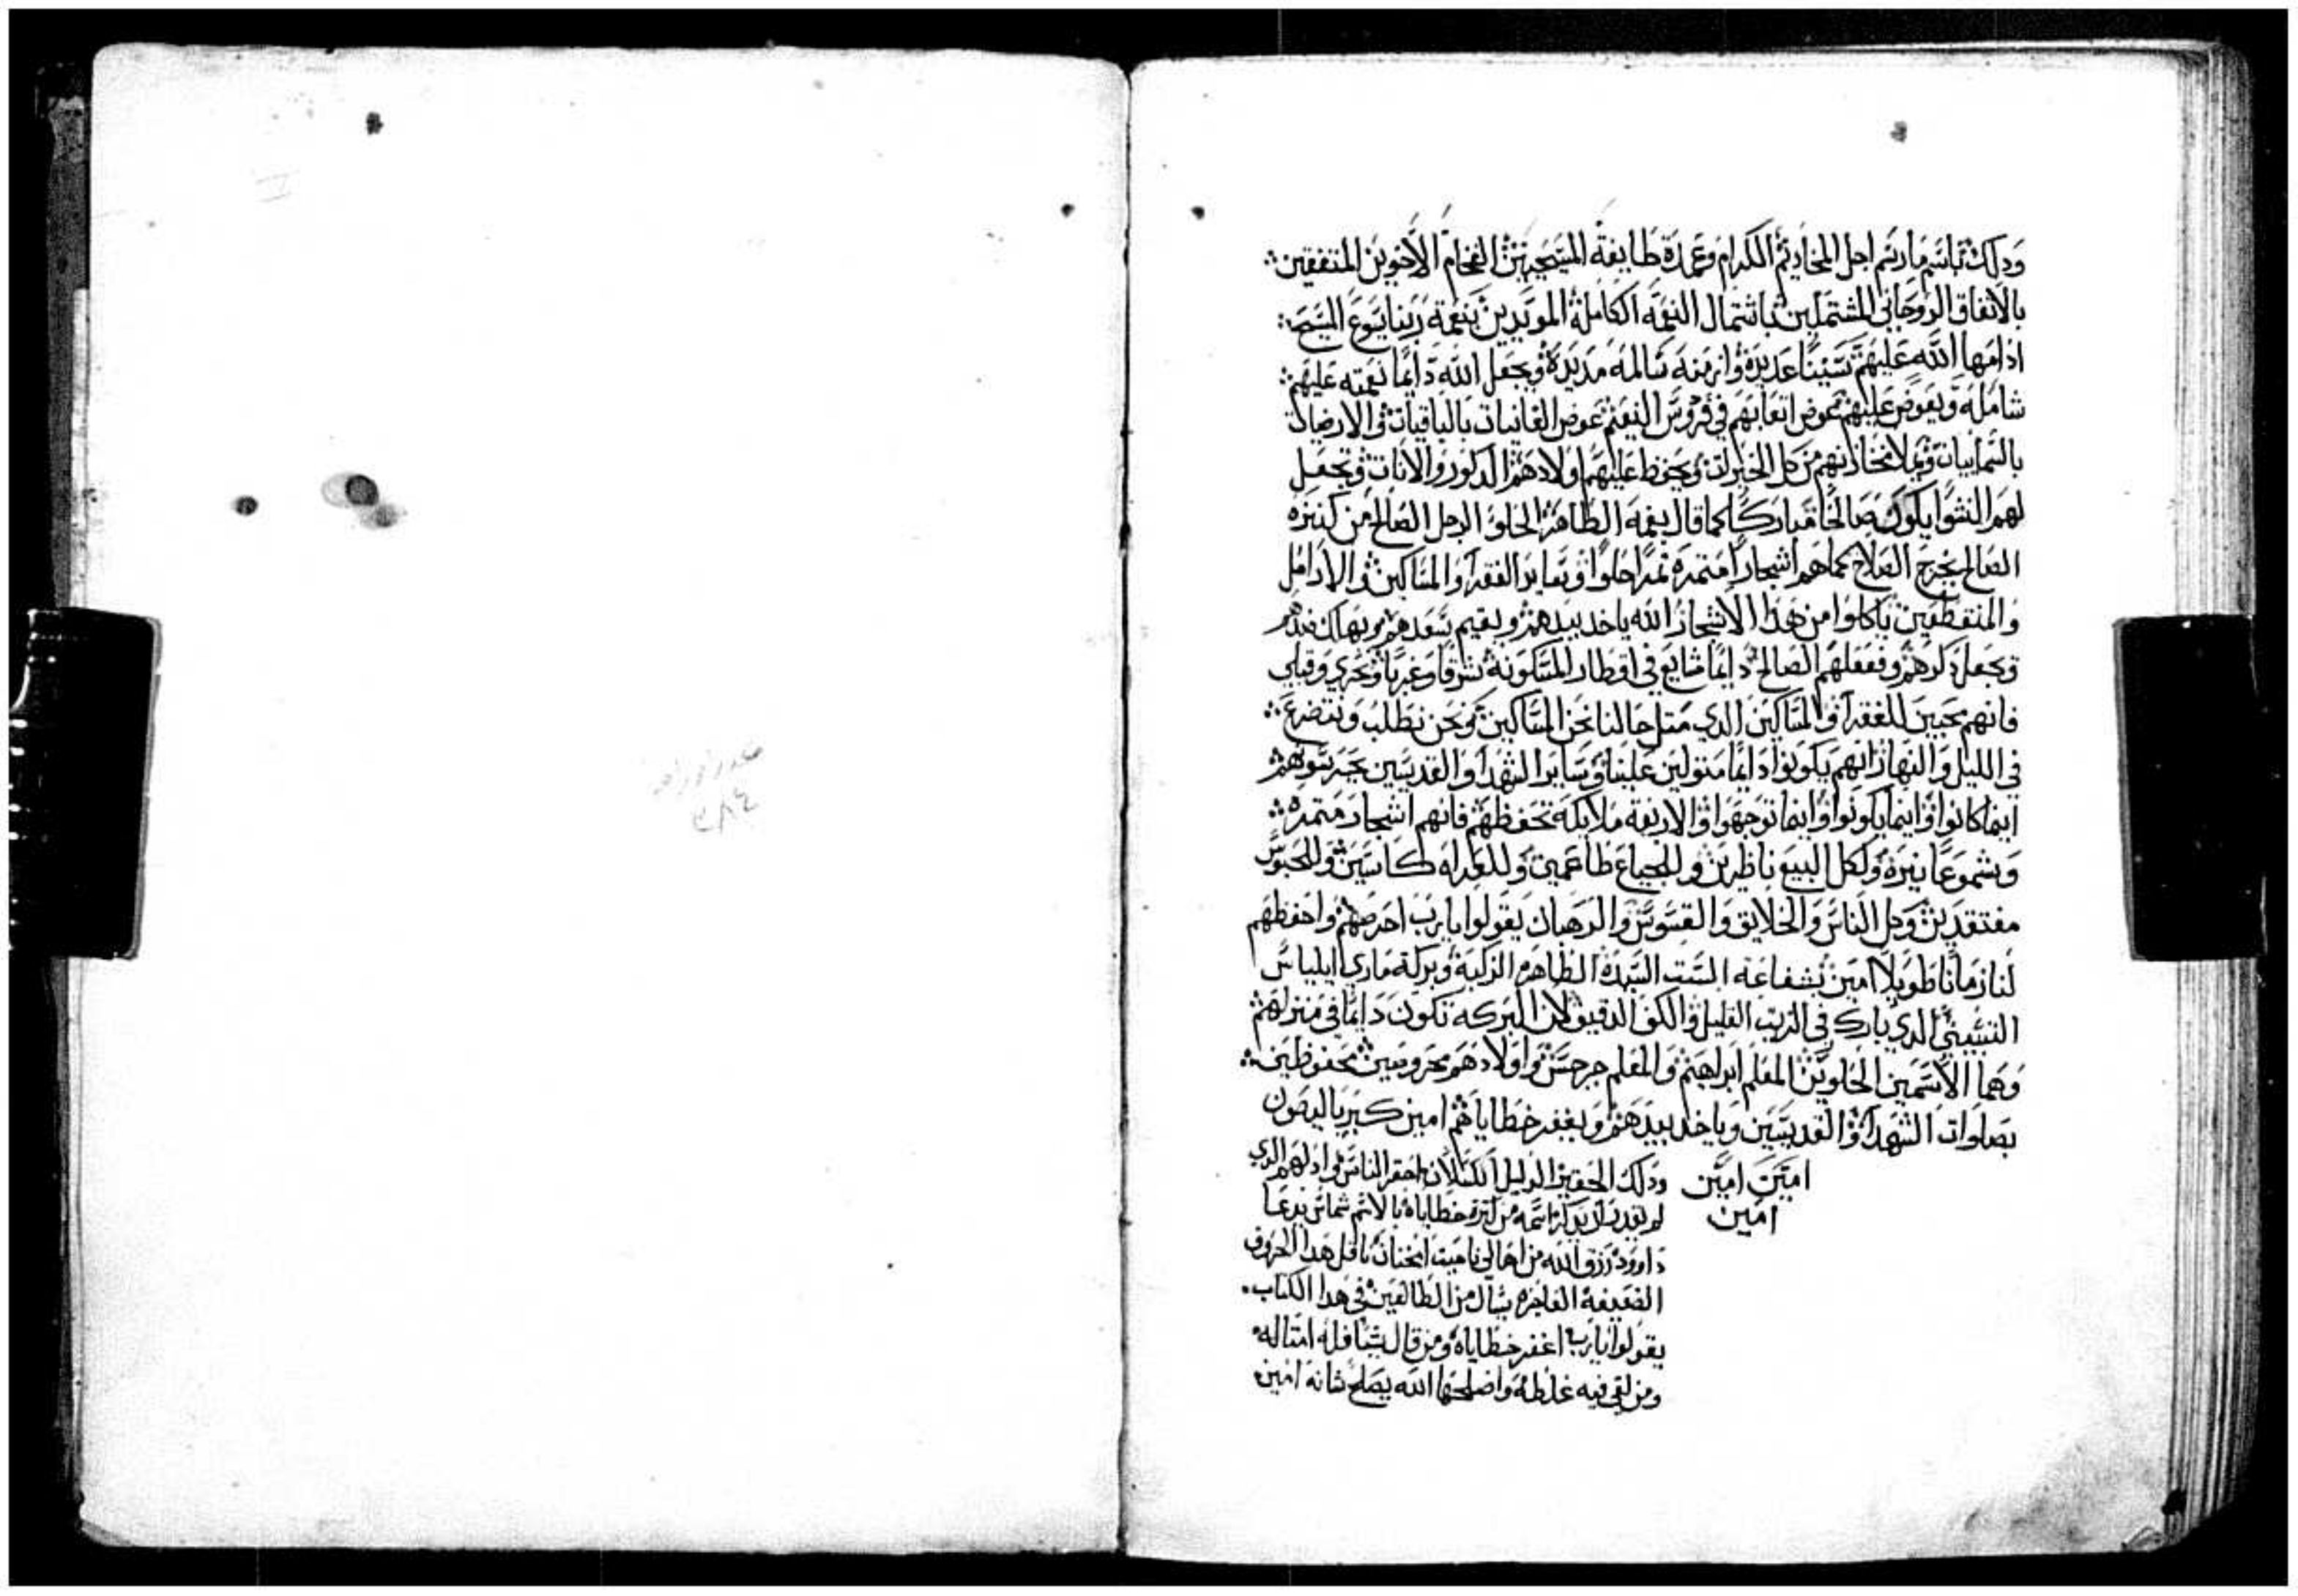 ودلك باسم مارسم اجل المخاديم الكرام وعمدة طايفة المسيحيين الفخام الاخوين المتفقين
بالاتفاق الروحاني المشتملين باشتمال النعمه الكاملة المويدين بنعمة ربنا يسوع المسيح
ادامها الله عليهم سنينا عديدة وازمنه سالمه مديدة ويجعل الله دايما نعمته عليهم
شامله ويعوض عليهم عوض اتعابهم في فردوس النعيم عوض الفانيات بالباقيات والارضيات
بالسماييات ويملا مخازنهم من كل الخيرات ويحفظ عليهم اولادهم الدكور والانات ويجعل
لهم النشوا يكون صالحا مباركا كما قال بفمه الطاهر الحلو الرجل الصالح من كنزه
الصالح يخرج الصلاح كما هم اشجارا متمره تمرا حلوا وساير الفقرا والمساكين والارامل
والمنقطعين ياكلوا من هدا الاشجار الله ياخد بيدهم ويقيم سعدهم ويهلك ضدهم
ويجعل دكرهم وفعلهم الصالح دايما شايع في اقطار المسكونه شرقا وغربا وبحري وقبلي
فانهم محبين للفقرا والمساكين الدي متل حالنا نحن المساكين ونحن نطلب ونتضرع
في الليل والنهار انهم يكونوا دايما متولين علينا وساير الشهدا والقديسين يحرسوهم
اينما كانوا واينما يكونوا واينما توجهوا والاربعة ملايكة تحفظهم فانهم اشجار متمره
وشموعا نيرة ولكل البيع ناظرين وللجياع طاعمين وللعراه كاسيين وللحبوس
مفتقدين وكل الناس والخلايق والقسوس والرهبان يقولوا يا رب احرصهم واحفظهم
لنا زمانا طويلا امين بشفاعة الست السيدة الطاهره الزكية وبركة ماري ايلياس
التسبيتي الدي بارك في الزيت القليل والكف الدقيق لان البركه تكون دايما في منزلهم
وهما الاسمين الحلوين المعلم ابراهيم والمعلم جرجس واولادهم محروسين محفوظين
بصلوات الشهدا والقديسين وياخد بيدهم ويغفر خطاياهم امين كيرياليصون
امين امين
امين
ودلك الحقير الدليل الكسلان احقر الناس وادلهم الدي
لم يقدر ان يدكر اسمه من كترة خطاياه بالاسم شماس يدعا
داوود رزق الله من اهالي ناحيت ناقل هدا الحروف
الضعيفة الفاجره يسال من الطالعين في هدا الكتاب
يقولوا يارب اغفر خطاياه ومن قال شيا فله امتاله
ومن لقي فيه غلطه واصلحها الله يصلح شانه امين